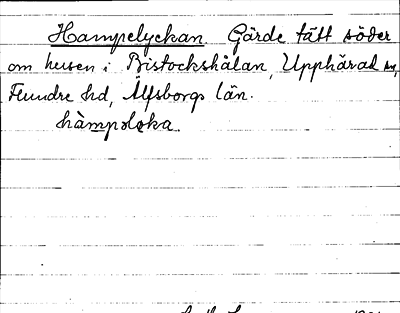 Hampelyckan. Gärde tätt söder
om husen i Bistockshålan, Upphärad sn,
Flundre hd, Älfsborgs län.
hàmpoloka.